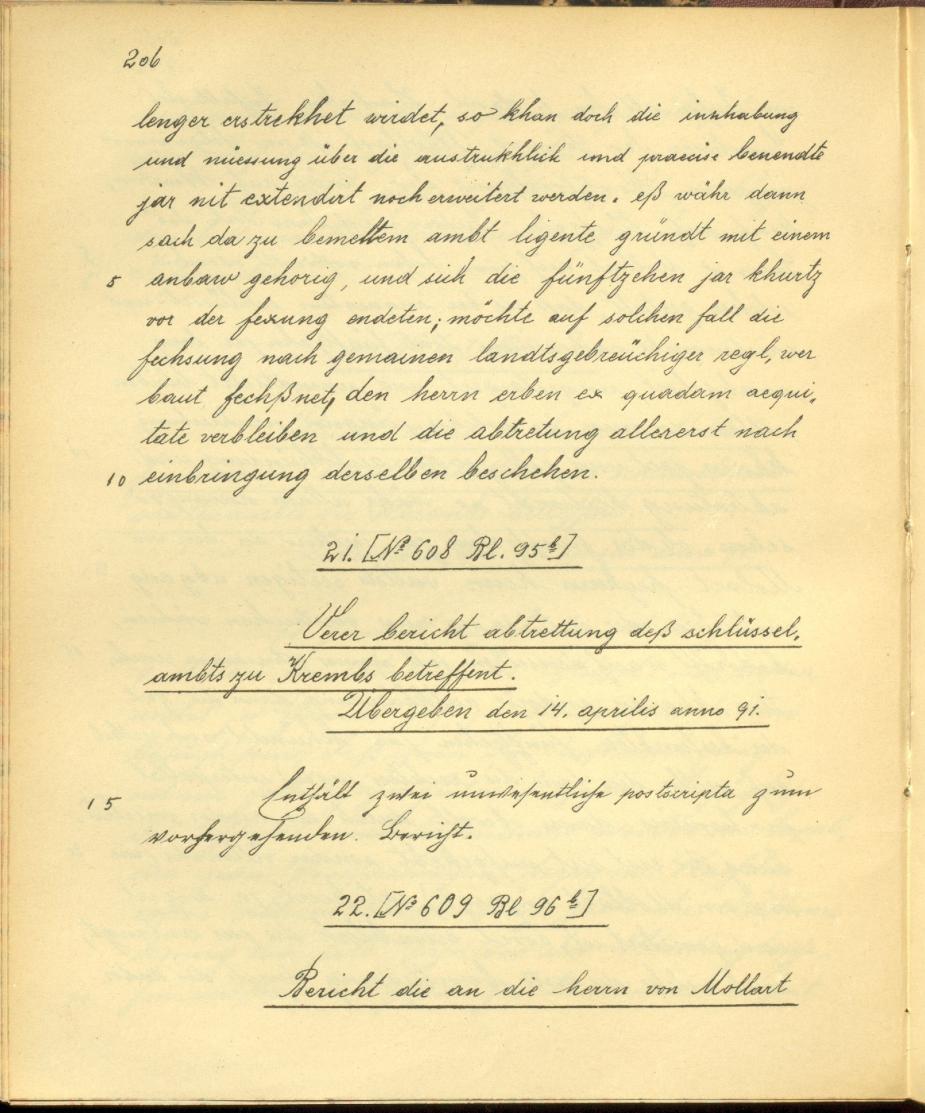 206
lenger erstrekhet wirdet, so khan doch die innhabung
und nüessung über die austrukhlich und praecise benendte
jar nit extendirt noch erweitert werden. eß währ dann
sach da zu bemeltem ambt ligente gründt mit einem
5 anbaw gehorig, und sich die fünftzehen jar khurtz
vor der fexung endeten; möchte auf solchen fall die
fechsung nach gemainen landtsgebreüchiger regl, wer
baut fechßnet, den herrn erben ex quadam aequi„
tate verbleiben und die abtretung allererst nach
10 einbringung derselben beschehen.
21. [№ 608 Bl. 95 b]
Verer bericht abtrettung deß schlüssel„
ambts zu Krembs betreffent.
Übergeben den 14. aprilis anno 91.
15 Enthält zwei unwesentliche postscripta zum
vorhergehenden. Bericht.
22. [№ 609 Bl 96 b]
Bericht die an die herrn von Mollart